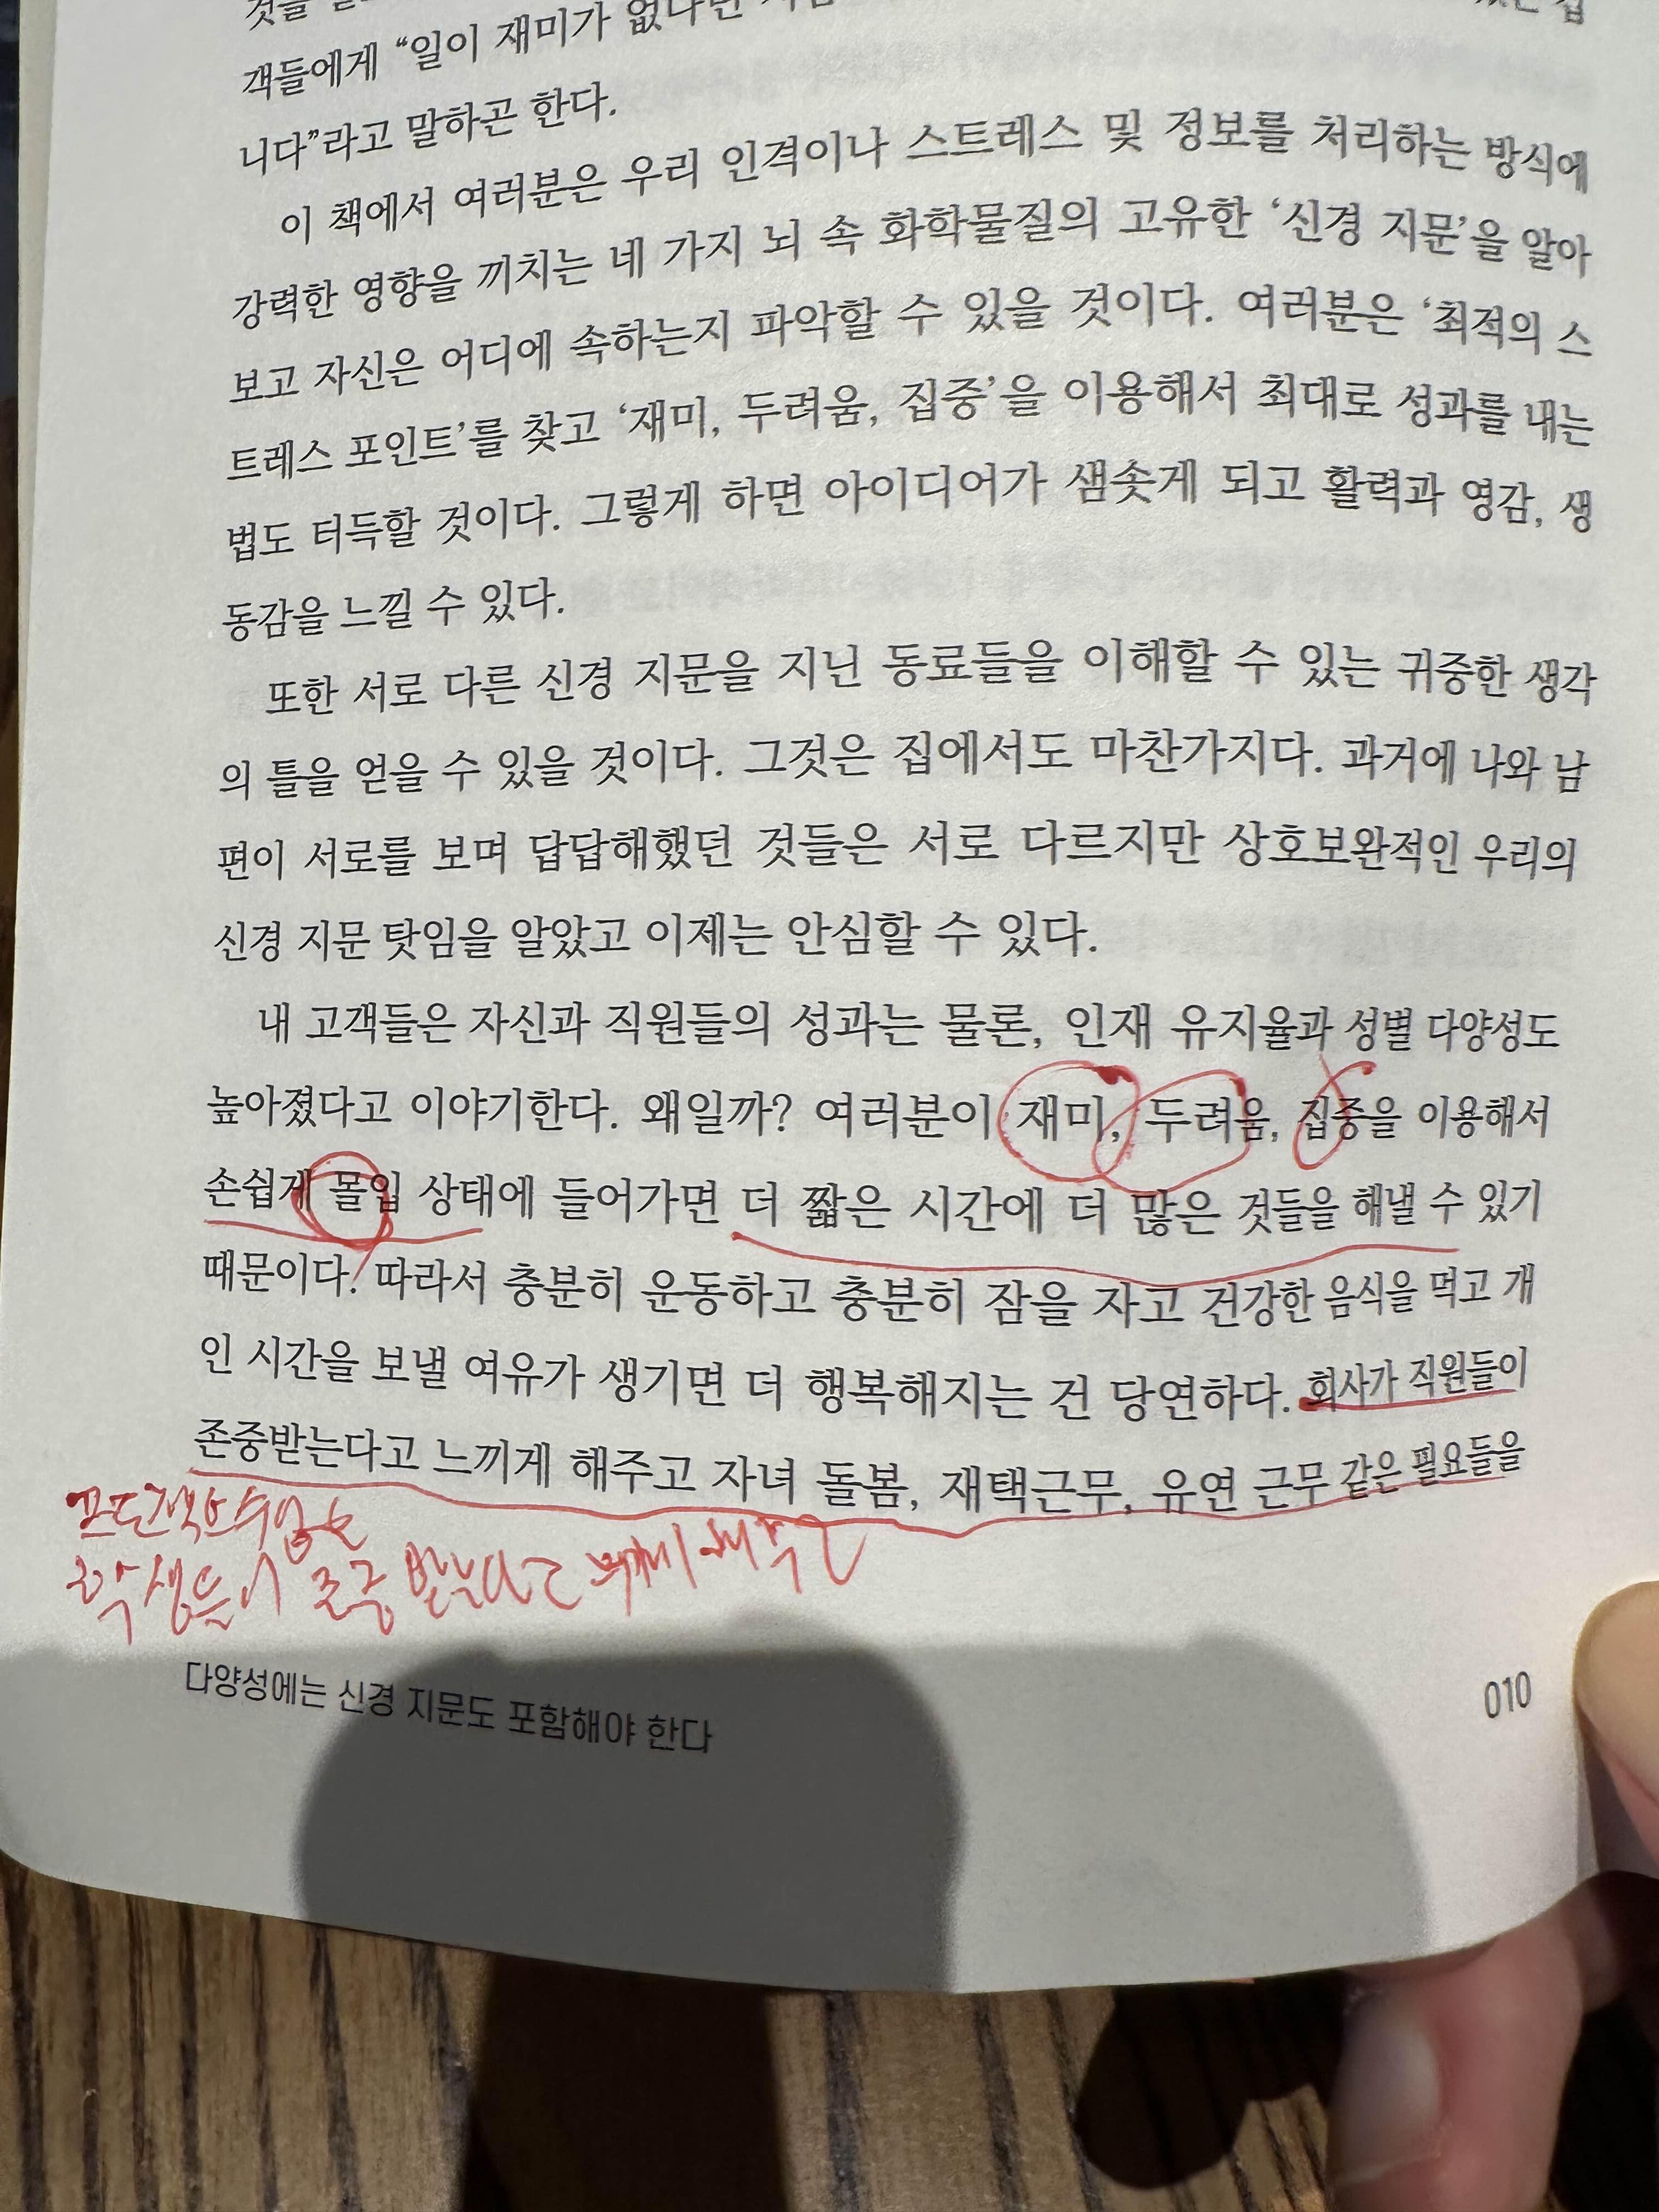 것을
객들에게 “일이 재미가 없다면
니다”라고 말하곤 한다.
이 책에서 여러분은 우리 인격이나 스트레스 및 정보를 처리하는 방식에
강력한 영향을 끼치는 네 가지 뇌 속 화학물질의 고유한 ‘신경 지문’을 알아
보고 자신은 어디에 속하는지 파악할 수 있을 것이다. 여러분은 ‘최적의 스
트레스 포인트’를 찾고 ‘재미, 두려움, 집중’을 이용해서 최대로 성과를 내는
법도 터득할 것이다. 그렇게 하면 아이디어가 샘솟게 되고 활력과 영감, 생
동감을 느낄 수 있다.
또한 서로 다른 신경 지문을 지닌 동료들을 이해할 수 있는 귀중한 생각
의 틀을 얻을 수 있을 것이다. 그것은 집에서도 마찬가지다. 과거에 나와 남
편이 서로를 보며 답답해했던 것들은 서로 다르지만 상호보완적인 우리의
신경 지문 탓임을 알았고 이제는 안심할 수 있다.
내 고객들은 자신과 직원들의 성과는 물론, 인재 유지율과 성별 다양성도
높아졌다고 이야기한다. 왜일까? 여러분이 재미, 두려움, 집중을 이용해서
손쉽게 몰입 상태에 들어가면 더 짧은 시간에 더 많은 것들을 해낼 수 있기
때문이다. 따라서 충분히 운동하고 충분히 잠을 자고 건강한 음식을 먹고 개
인 시간을 보낼 여유가 생기면 더 행복해지는 건 당연하다. 회사가 직원들이
존중받는다고 느끼게 해주고 자녀 돌봄, 재택근무, 유연 근무 같은 필요들을
학생들이 존중 받는다고 느끼게 해주고
다양성에는 신경 지문도 포함해야 한다
010